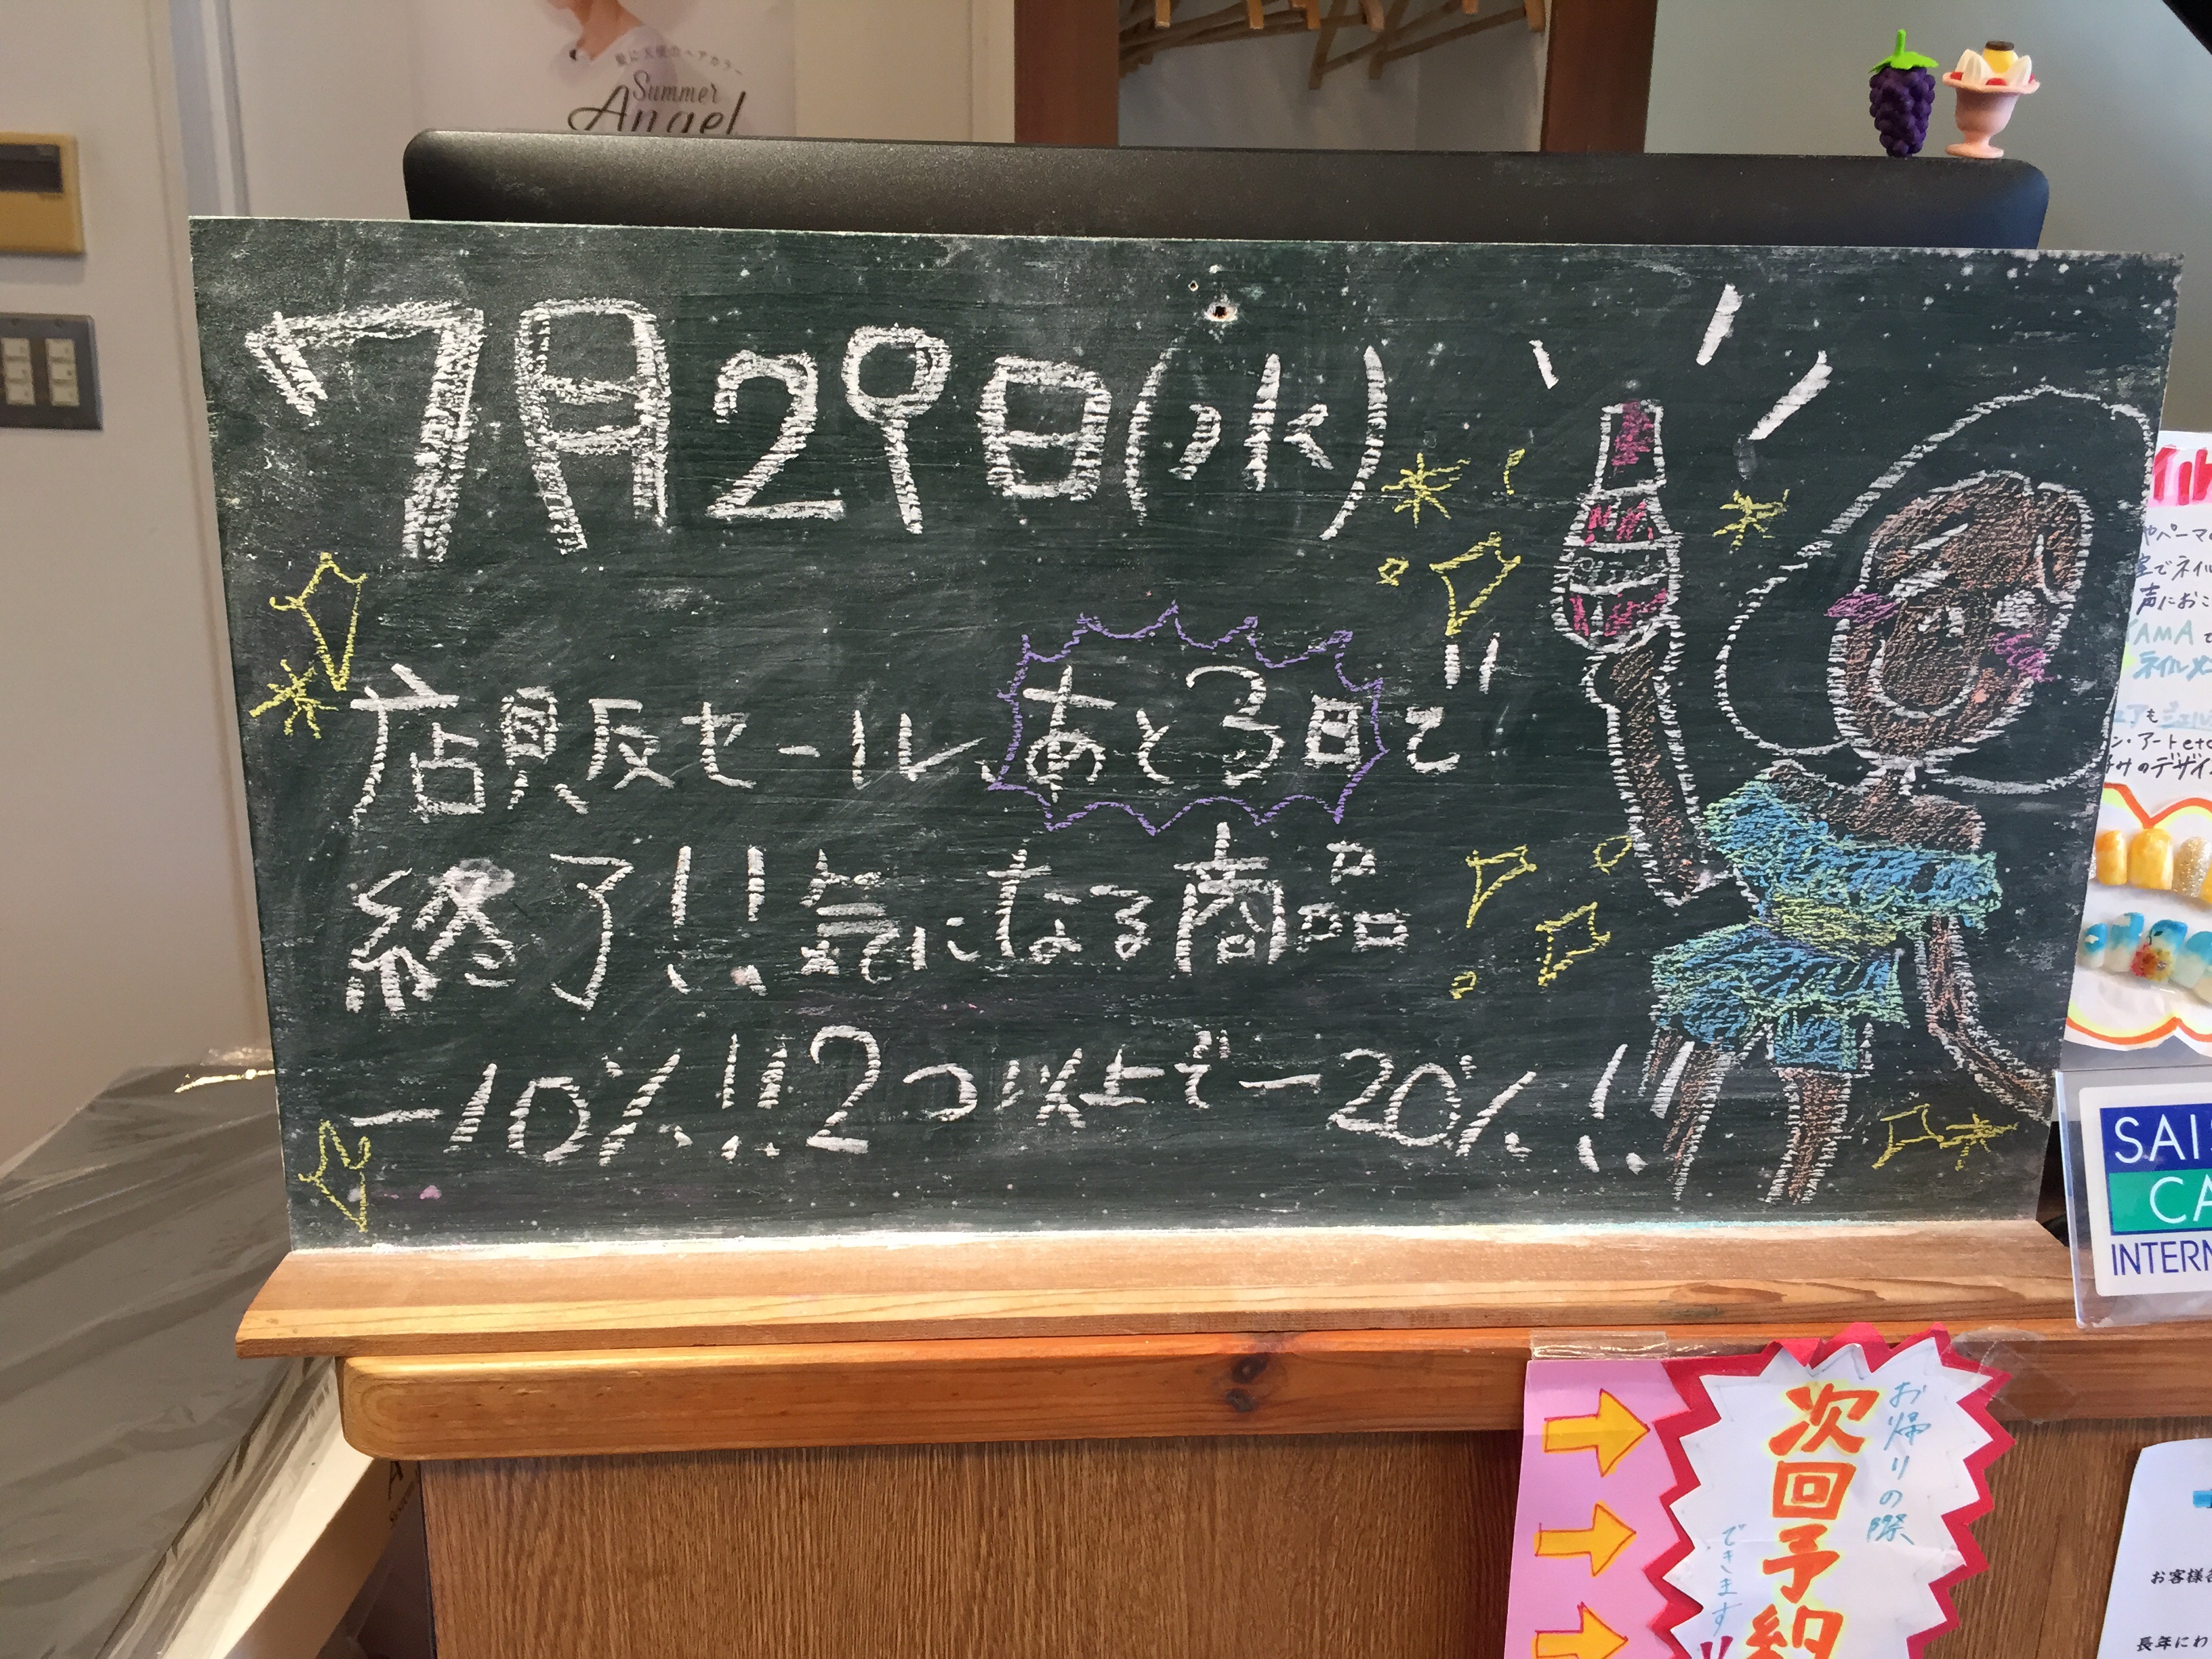 髪に天使のヘアカラー
Summer
Angel
7月29日(水)
店販セール、あと3日で
終了!!気になる商品
-10%!!2つ以上で-20%!!
やパーマの
室でネイル
声におこ
YAMAで
ネイル
アート etc
みのデザイ
SAIS
CA
INTERN
お帰りの際
次回予約
できます
お客様各
長年にわ